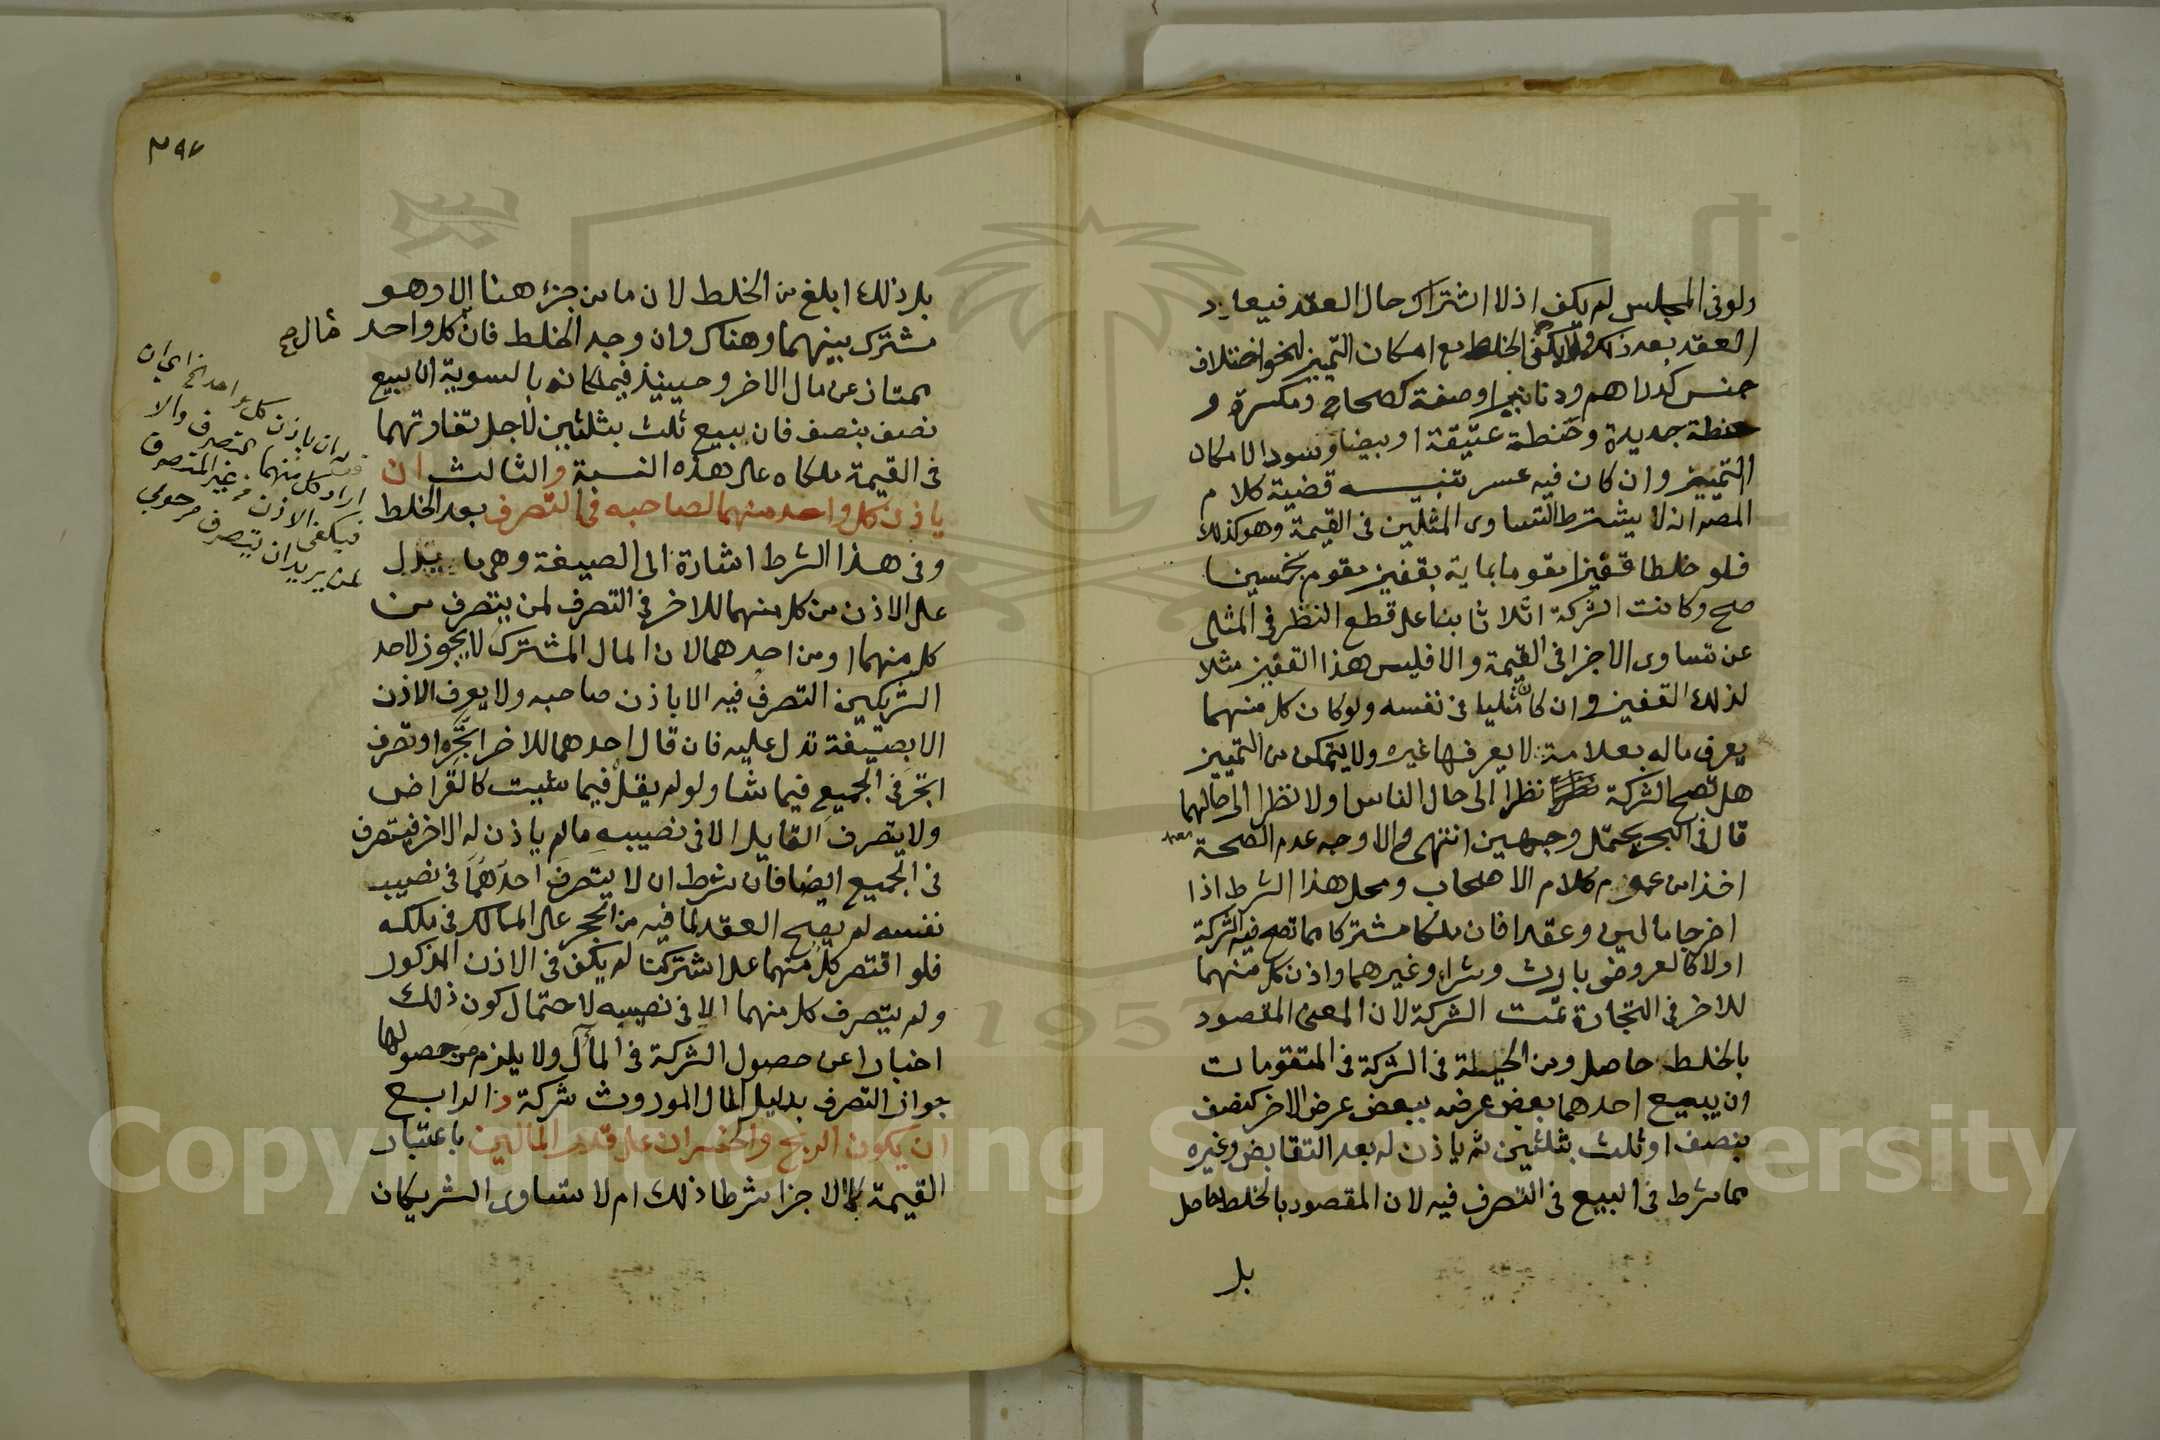 ولو فى المجلس لم يكف اذ لا اشتراك حال العقد فيعاد
العقد بعد ذلك ولا يكفى الخلط مع امكان التمييز لنحو اختلاف
جنس كدراهم ودنانير او صفة كصحاح ومكسرة و
حنطة جديدة وحنطة عتيقة او بيضا وسودا لامكان
التمييز وان كان فيه عسر تنبيــه قضية كلام
المصر انه لا يشترط التساوى المثلين فى القيمة وهو كذلك
فلو خلطا قفيزا مقوما بماية بقفيز مقوم بخمسين
صح وكانت الشركة اثلاثا بناء على قطع النظر فى المثلى
عن تساوى الاجزا فى القيمة والا فليس هذا القفيز مثلا
لذلك القفيز وان كان مثليا فى نفسه ولو كان كل منهما
يعرف ماله بعلامة لا يعرفها غيره ولا يتمكن من التمييز
هل تصح الشركة نظرا الى حال الناس او لا نظرا الى حالهما
قال فى البحر يحتمل وجهين انتهى والاوجه عدم الصحة
اخذا من عموم كلام الاصحاب ومحل هذا الشرط اذا
اخرجا مالين وعقدا فان ملكا مشتركا مما تصح فيه الشركة
اولا كالعروض بارث وشرا وغيرهما واذن كل منهما
للاخر فى التجارة تمت الشركة لان المعنى المقصود
بالخلط حاصل ومن الحيلة فى الشركة فى المتقومات
ان يبيع احدهما بعض عرضه ببعض عرض الاخر كنصف
بنصف او ثلث بثلثين ثم ياذن له بعد التقابض وغيره
مما شرط فى البيع فى التصرف فيه لان المقصود بالخلط حاصل
بل
٣٩٧
بل ذلك ابلغ من الخلط لان ما من جزء هنا الا وهو
مشترك بينهما وهناك وان وجد الخلط فان مال كل واحد
ممتاز عن مال الاخر وحينيذ فيملكانه بالسوية ان بيع
نصف بنصف فان بيع ثلث بثلثين لاجل تفاوتهما
فى القيمة ملكاه على هذه النسبة والثالث ان
ياذن كل واحد منهما لصاحبه فى التصرف بعد الخلط
وفى هذا الشرط اشارة الى الصيغة وهى ما يدل
على الاذن من كل منهما للاخر فى التصرف لمن يتصرف من
كل منهما او من احدهما لان المال المشترك لا يجوز لاحد
الشريكين التصرف فيه الا باذن صاحبه ولا يعرف الاذن
الا بصيغة تدل عليه فان قال احدهما للاخر اتجر او تصرف
اتجر فى الجميع فيما شا ولو لم يقل فيما شيت كالقراض
ولا يتصرف القايل الا فى نصيبه ما لم ياذن له الاخر فيتصرف
فى الجميع ايضا فان شرط ان لا يتصرف احدهما فى نصيب
نفسه لم يصح العقد لما فيه من الحجر على المالك فى ملكه
فلو اقتصر كل منهما على اشتركنا لم يكف فى الاذن المذكور
ولم يتصرف كل منهما الا فى نصيبه لاحتمال كون ذلك
اخبارا عن حصول الشركة فى المال ولا يلزم من حصولها
جواز التصرف بدليل المال الموروث شركة و الرابع
ان يكون الربح والخسران على قدر المالين باعتبار
القيمة لا الاجزا شرطا ذلك ام لا تساوى الشريكان
مال صح
ان ياذن كل واحد الخ اى ان
اراد كل منهما التصرف والا
فيكفى الاذن من غير المتصرف
لمن يريد ان يتصرف مرحومى